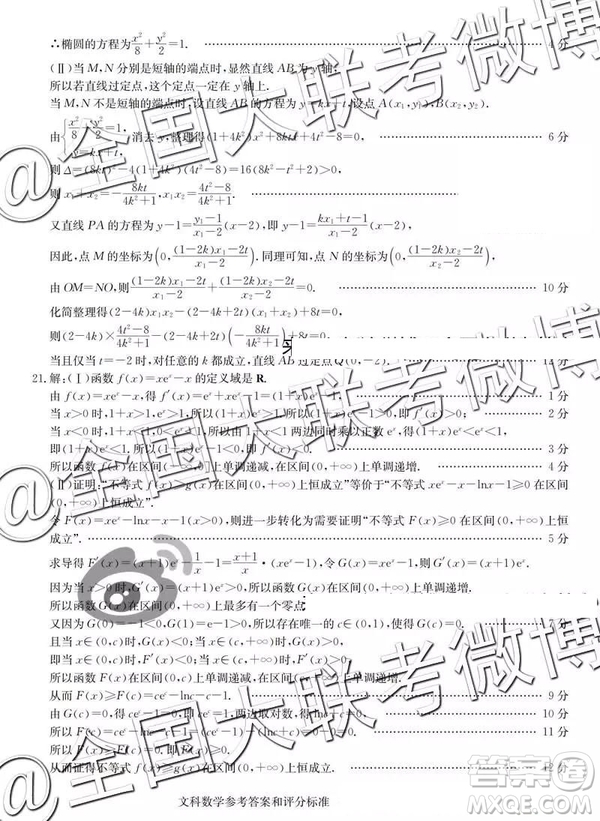 ∴椭圆的方程为x²/8+y²/2=1. 4分
(Ⅱ)当M,N分别是短轴的端点时,显然直线AB为y轴,
所以若直线过定点,这个定点一定在y轴上.
当M,N不是短轴的端点时,设直线AB的方程为y=kx+t,设点A(x₁,y₁),B(x₂,y₂).
由{x²/8+y²/2=1, y=kx+t, 消去y,整理得(1+4k²)x²+8ktx+4t²-8=0, 6分
则Δ=(8kt)²-4(1+4k²)(4t²-8)=16(8k²-t²+2)>0,
则x₁+x₂=-8kt/(4k²+1),x₁x₂=(4t²-8)/(4k²+1).
又直线PA的方程为y-1=(y₁-1)/(x₁-2)(x-2),即y-1=(kx₁+t-1)/(x₁-2)(x-2),
因此,点M的坐标为(0,((1-2k)x₁-2t)/(x₁-2)).同理可知,N的坐标为(0,((1-2k)x₂-2t)/(x₂-2)),
由OM=NO,则((1-2k)x₁-2t)/(x₁-2)+((1-2k)x₂-2t)/(x₂-2)=0. 10分
化简整理得(2-4k)x₁x₂-(2-4k+2t)(x₁+x₂)+8t=0,
则(2-4k)×(4t²-8)/(4k²+1)-(2-4k+2t)(-8kt/(4k²+1))+8t=0,
当且仅当t=-2时,对任意的k都成立,直线AB过定点Q(0,-2). 12分
21.解:(Ⅰ)函数f(x)=xeˣ-x的定义域是R.
由f(x)=xeˣ-x,得f′(x)=(1+x)eˣ-1. 1分
当x>0时,1+x>1,所以(1+x)eˣ>1,所以f′(x)>0. 2分
当x<0时,1+x<1,所以由1+x<1两边同时乘以正数eˣ,得(1+x)eˣ<eˣ,
即(1+x)eˣ<eˣ<1,所以(1+x)eˣ<1,所以f′(x)<0. 3分
所以函数f(x)在区间(-∞,0)上单调递减,在区间(0,+∞)上单调递增. 4分
(Ⅱ)证明:“不等式f(x)≥g(x)在区间(0,+∞)上恒成立”等价于“不等式xeˣ-x-lnx-1≥0在区间(0,+∞)上恒成立”.
令F(x)=xeˣ-lnx-x-1(x>0),则进一步转化为需要证明“不等式F(x)≥0在区间(0,+∞)上恒
成立”. 5分
求导得F′(x)=(x+1)eˣ-1/x-1=(x+1)/x·(xeˣ-1),令G(x)=xeˣ-1,则G′(x)=(x+1)eˣ.
因为当x>0时,G′(x)>0,所以函数G(x)在区间(0,+∞)上单调递增.
所以函数G(x)在区间(0,+∞)上最多有一个零点.
又因为G(0)=-1<0,G(1)=e-1>0,所以存在唯一的c∈(0,1),使得G(c)=0. 7分
且当x∈(0,c)时,G(x)<0;当x∈(c,+∞)时,G(x)>0.
即当x∈(0,c)时,F′(x)<0;当x∈(c,+∞)时,F′(x)>0.
所以函数F(x)在区间(0,c)上单调递减,在区间(c,+∞)上单调递增.
从而F(x)≥F(c)=ceᶜ-lnc-c-1. 9分
由G(c)=0,得ceᶜ-1=0,即ceᶜ=1,两边取对数,得lnc+c=0. 10分
所以F(c)=ceᶜ-lnc-c-1=(ceᶜ-1)-(lnc+c)=0-0=0. 11分
所以F(x)≥F(c)=0,即F(x)≥0.
从而证得不等式f(x)≥g(x)在区间(0,+∞)上恒成立. 12分
文科数学参考答案和评分标准
@全国大联考微博
@全国大联考微博
答案圈